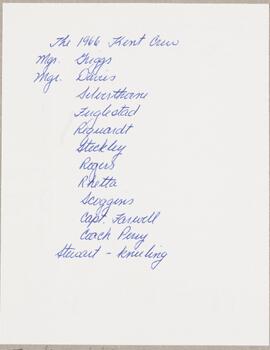 The 1966 Kent Crew
Mgr. Griggs
Mgr. Davis
Silverthorne
Fuglestad
Requardt
Steckley
Rogers
Rhetta
Scoggins
Capt. Farwell
Coach Perry
Stewart - kneeling